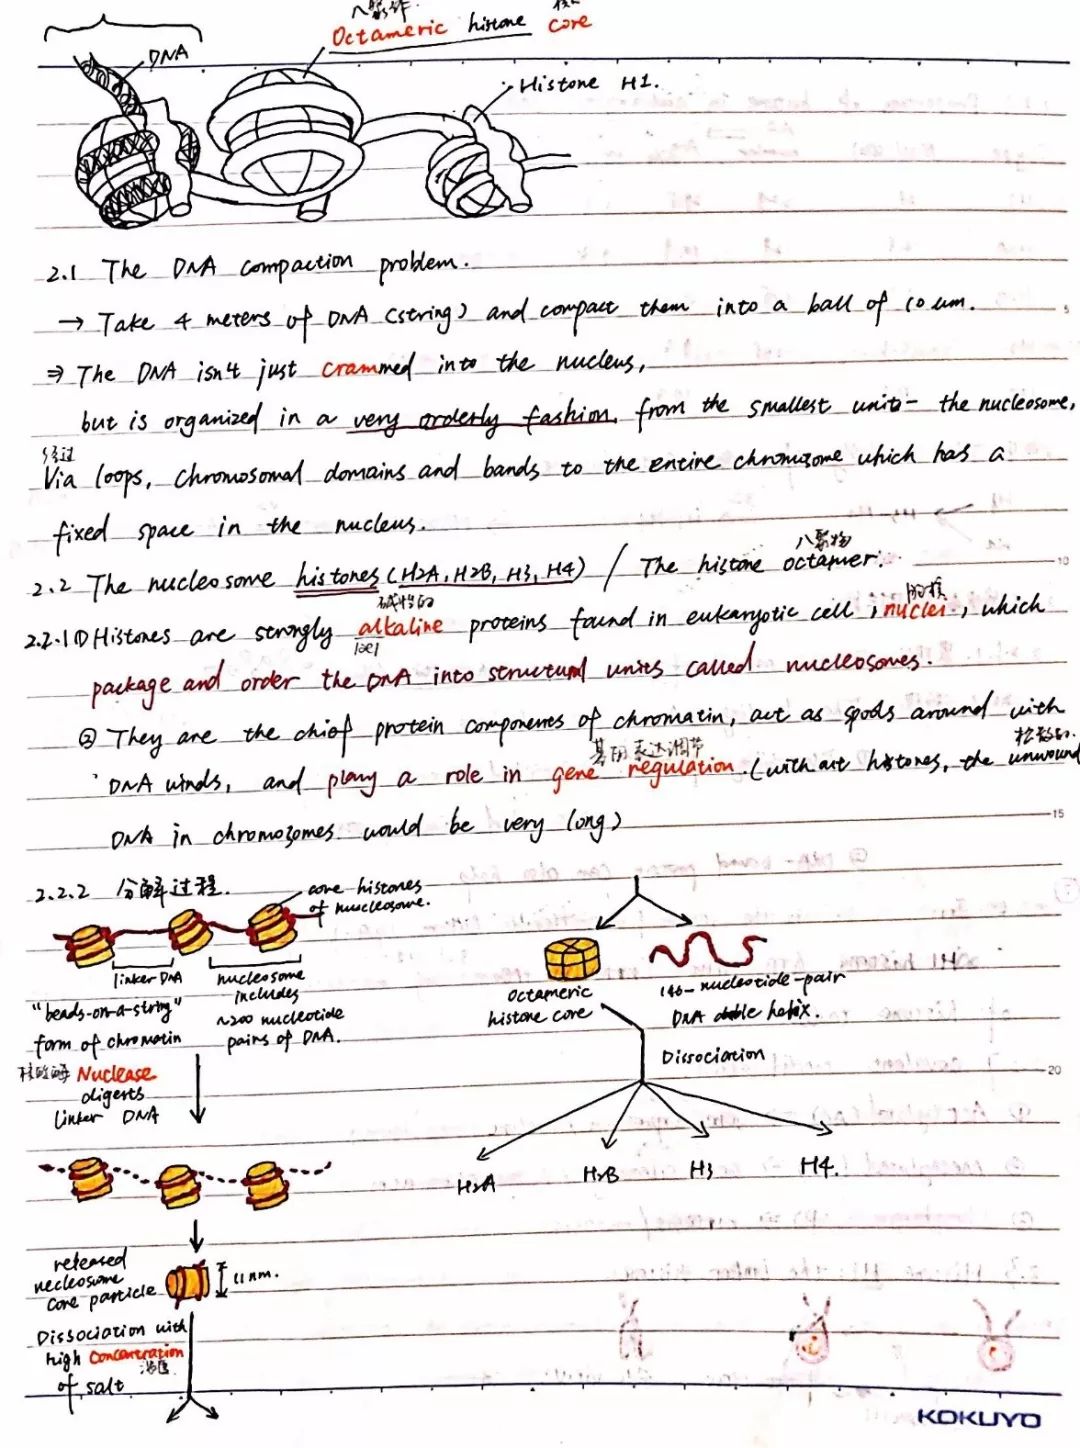 Octameric histone core
DNA
Histone H1.
2.1 The DNA compaction problem.
→ Take 4 meters of DNA (string) and compact them into a ball of 10 um.
⇒ The DNA isn't just crammed into the nucleus,
but is organized in a very orderly fashion, from the smallest unit- the nucleosome,
经过
Via loops, Chromosomal domains and bands to the entire chromosome which has a
fixed space in the nucleus.
八聚物
2.2 The nucleosome histones (H2A, H2B, H3, H4) / The histone octamer:
碱性的 的核
2.2.1 ① Histones are strongly alkaline proteins found in eukaryotic cell nuclei, which
package and order the DNA into structural units called nucleosomes.
② They are the chief protein components of chromatin, act as spools around with
基因表达调节 松散的.
DNA winds, and play a role in gene regulation. (without histones, the unwound
DNA in chromosomes would be very long)
2.2.2 分解过程.
core histones
of nucleosome.
linker DNA
nucleosome
includes
~200 nucleotide
pairs of DNA.
"beads-on-a-string"
form of chromatin
Nuclease
digests
linker DNA
released
necleosome
core particle
11 nm.
Dissociation with
high concentration
浓度
of salt
Octameric
histone core
146-nucleotide-pair
DNA double helix.
Dissociation
H2A
H2B
H3
H4.
5
10
15
20
KOKUYO